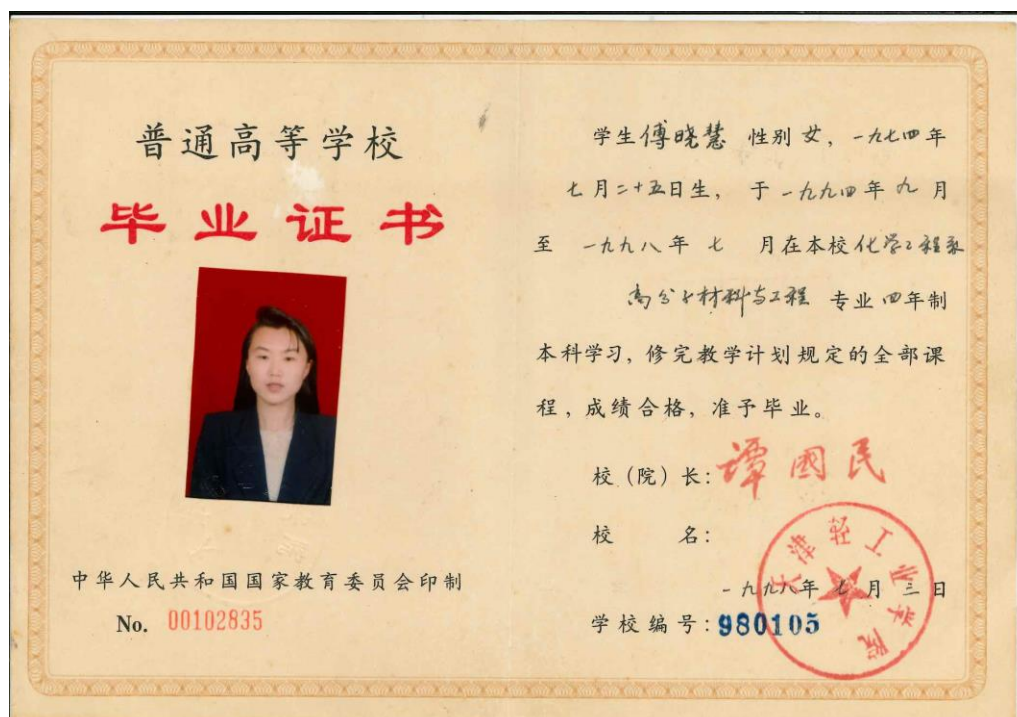 普通高等学校
毕业证书
中华人民共和国国家教育委员会印制
No. 00102835
学生傅晓慧 性别女，一九七四年
七月二十五日生，于一九九四年九月
至 一九九八年 七 月在本校化学工程系
高分子材料与工程 专业四年制
本科学习，修完教学计划规定的全部课
程，成绩合格，准予毕业。
校（院）长：谭国民
校 名：
天津轻工业学院
一九九八年七月三日
学校编号：980105